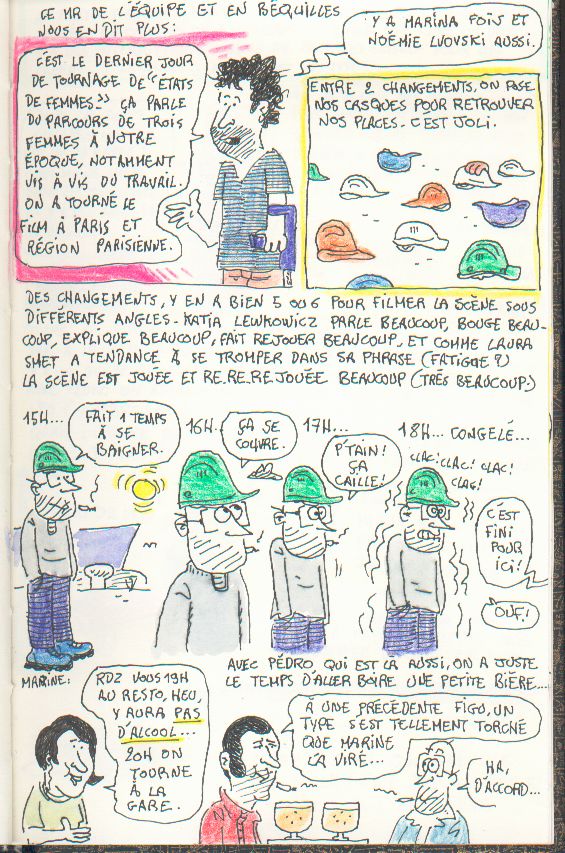 CE MR DE L'ÉQUIPE ET EN BÉQUILLES
NOUS EN DIT PLUS:
C'EST LE DERNIER JOUR
DE TOURNAGE DE "ÉTATS
DE FEMMES" ÇA PARLE
DU PARCOURS DE TROIS
FEMMES À NOTRE
ÉPOQUE, NOTAMMENT
VIS À VIS DU TRAVAIL.
ON A TOURNÉ LE
FILM À PARIS ET
RÉGION PARISIENNE.
Y A MARINA FOIS ET
NOÉMIE LVOVSKI AUSSI.
ENTRE 2 CHANGEMENTS, ON POSE
NOS CASQUES POUR RETROUVER
NOS PLACES - C'EST JOLI.
DES CHANGEMENTS, Y EN A BIEN 5 OU 6 POUR FILMER LA SCÈNE SOUS
DIFFÉRENTS ANGLES - KATIA LEWKOWICZ PARLE BEAUCOUP, BOUGE BEAU-
COUP, EXPLIQUE BEAUCOUP, FAIT REJOUER BEAUCOUP, ET COMME LAURA
SMET A TENDANCE À SE TROMPER DANS SA PHRASE (FATIGUE?)
LA SCÈNE EST JOUÉE ET RE.RE.RE JOUÉE BEAUCOUP (TRÈS BEAUCOUP.)
15H...
FAIT 1 TEMPS
À SE
BAIGNER.
16H...
ÇA SE
COUVRE.
17H...
P'TAIN!
ÇA
CAILLE!
18H... CONGELÉ...
CLAC! CLAC! CLAC!
CLAC!
C'EST
FINI
POUR
ICI!
OUF!
AVEC PÉDRO, QUI EST LÀ AUSSI, ON A JUSTE
LE TEMPS D'ALLER BOIRE UNE PETITE BIÈRE...
MARINE:
RDZ VOUS 19H
AU RESTO, HEU,
Y AURA PAS
D'ALCOOL...
20H ON
TOURNE
À LA
GARE.
À UNE PRÉCÉDENTE FIGU, UN
TYPE S'EST TELLEMENT TORCHÉ
QUE MARINE
L'A VIRÉ...
HA,
D'ACCORD...